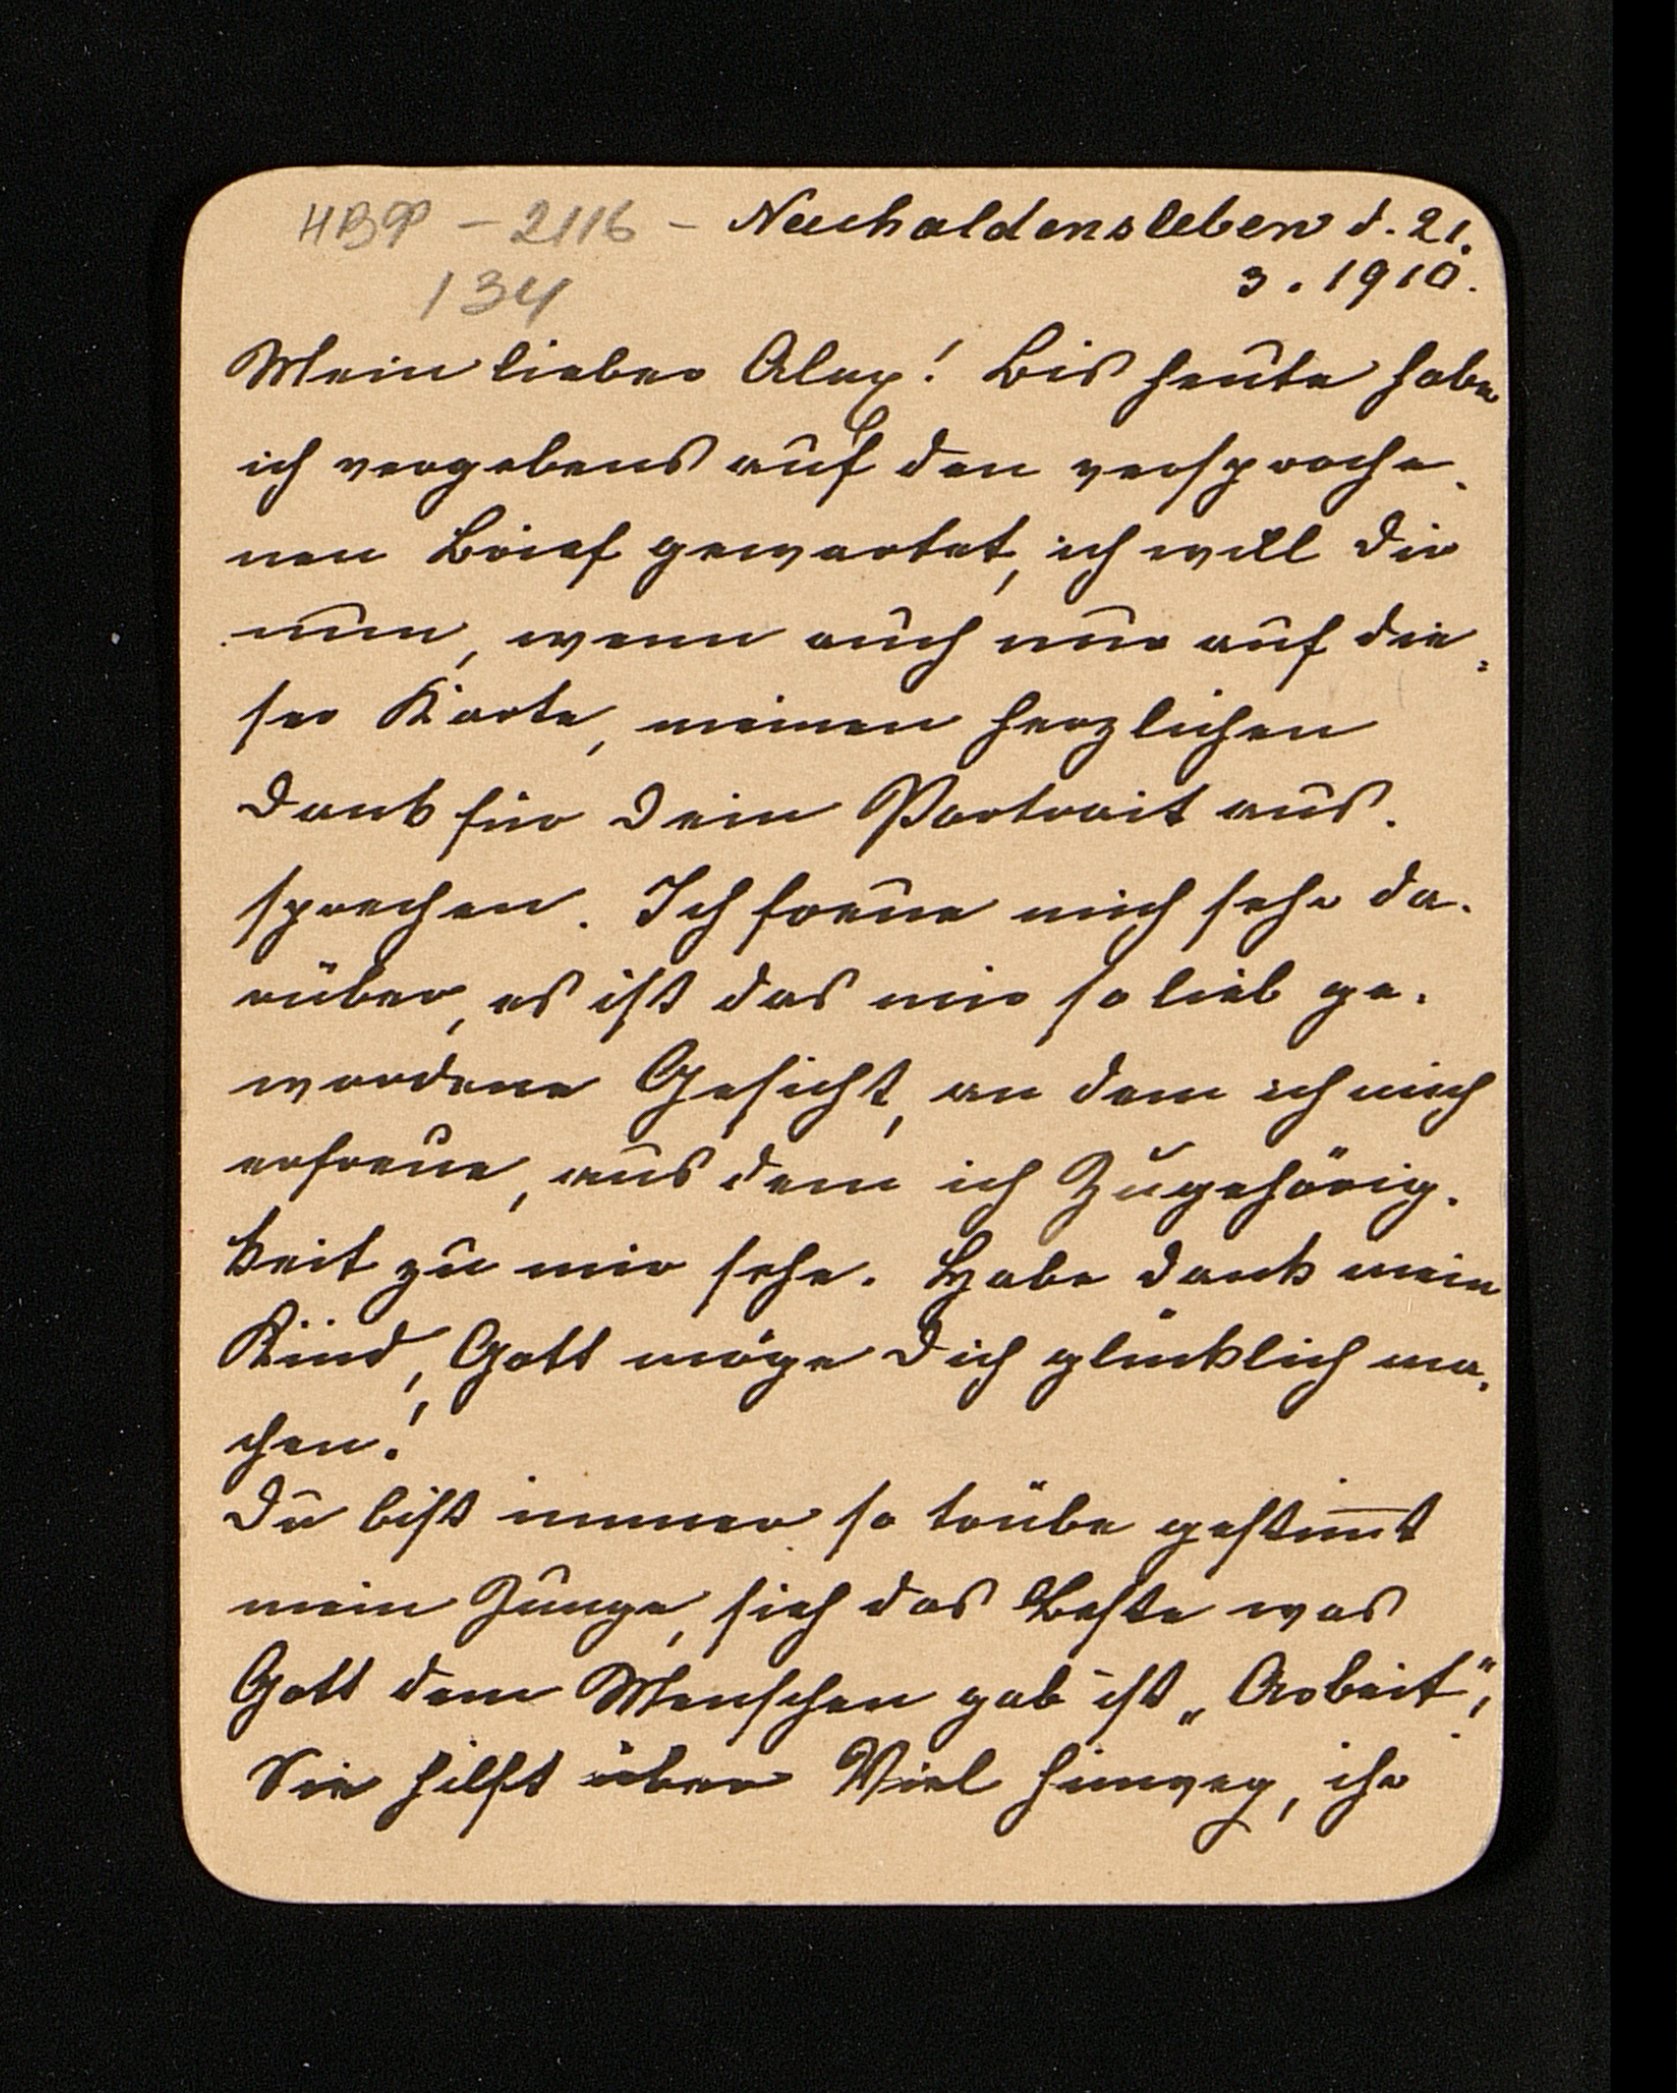 НВФ – 2116 – Neuhaldensleben d. 21.
134
3. 1910.
Mein lieber Alex! Bis heute habe
ich vergebens auf den versproche-
nen Brief gewartet, ich will Dir
nun, wenn auch nur auf die-
ser Karte, meinen herzlichen
Dank für Dein Portrait aus-
sprechen. Ich freue mich sehr da-
rüber, es ist das mir so lieb ge-
wordene Gesicht, an dem ich mich
erfreue, aus dem ich Zugehörig-
keit zu mir sehe. Habe Dank mein
Kind, Gott möge Dich glücklich ma-
chen!
Du bist immer so trübe gestim̅t
mein Junge, sieh das Beste was
Gott dem Menschen gab ist „Arbeit",
Sie hilft über Viel hinweg, ihr